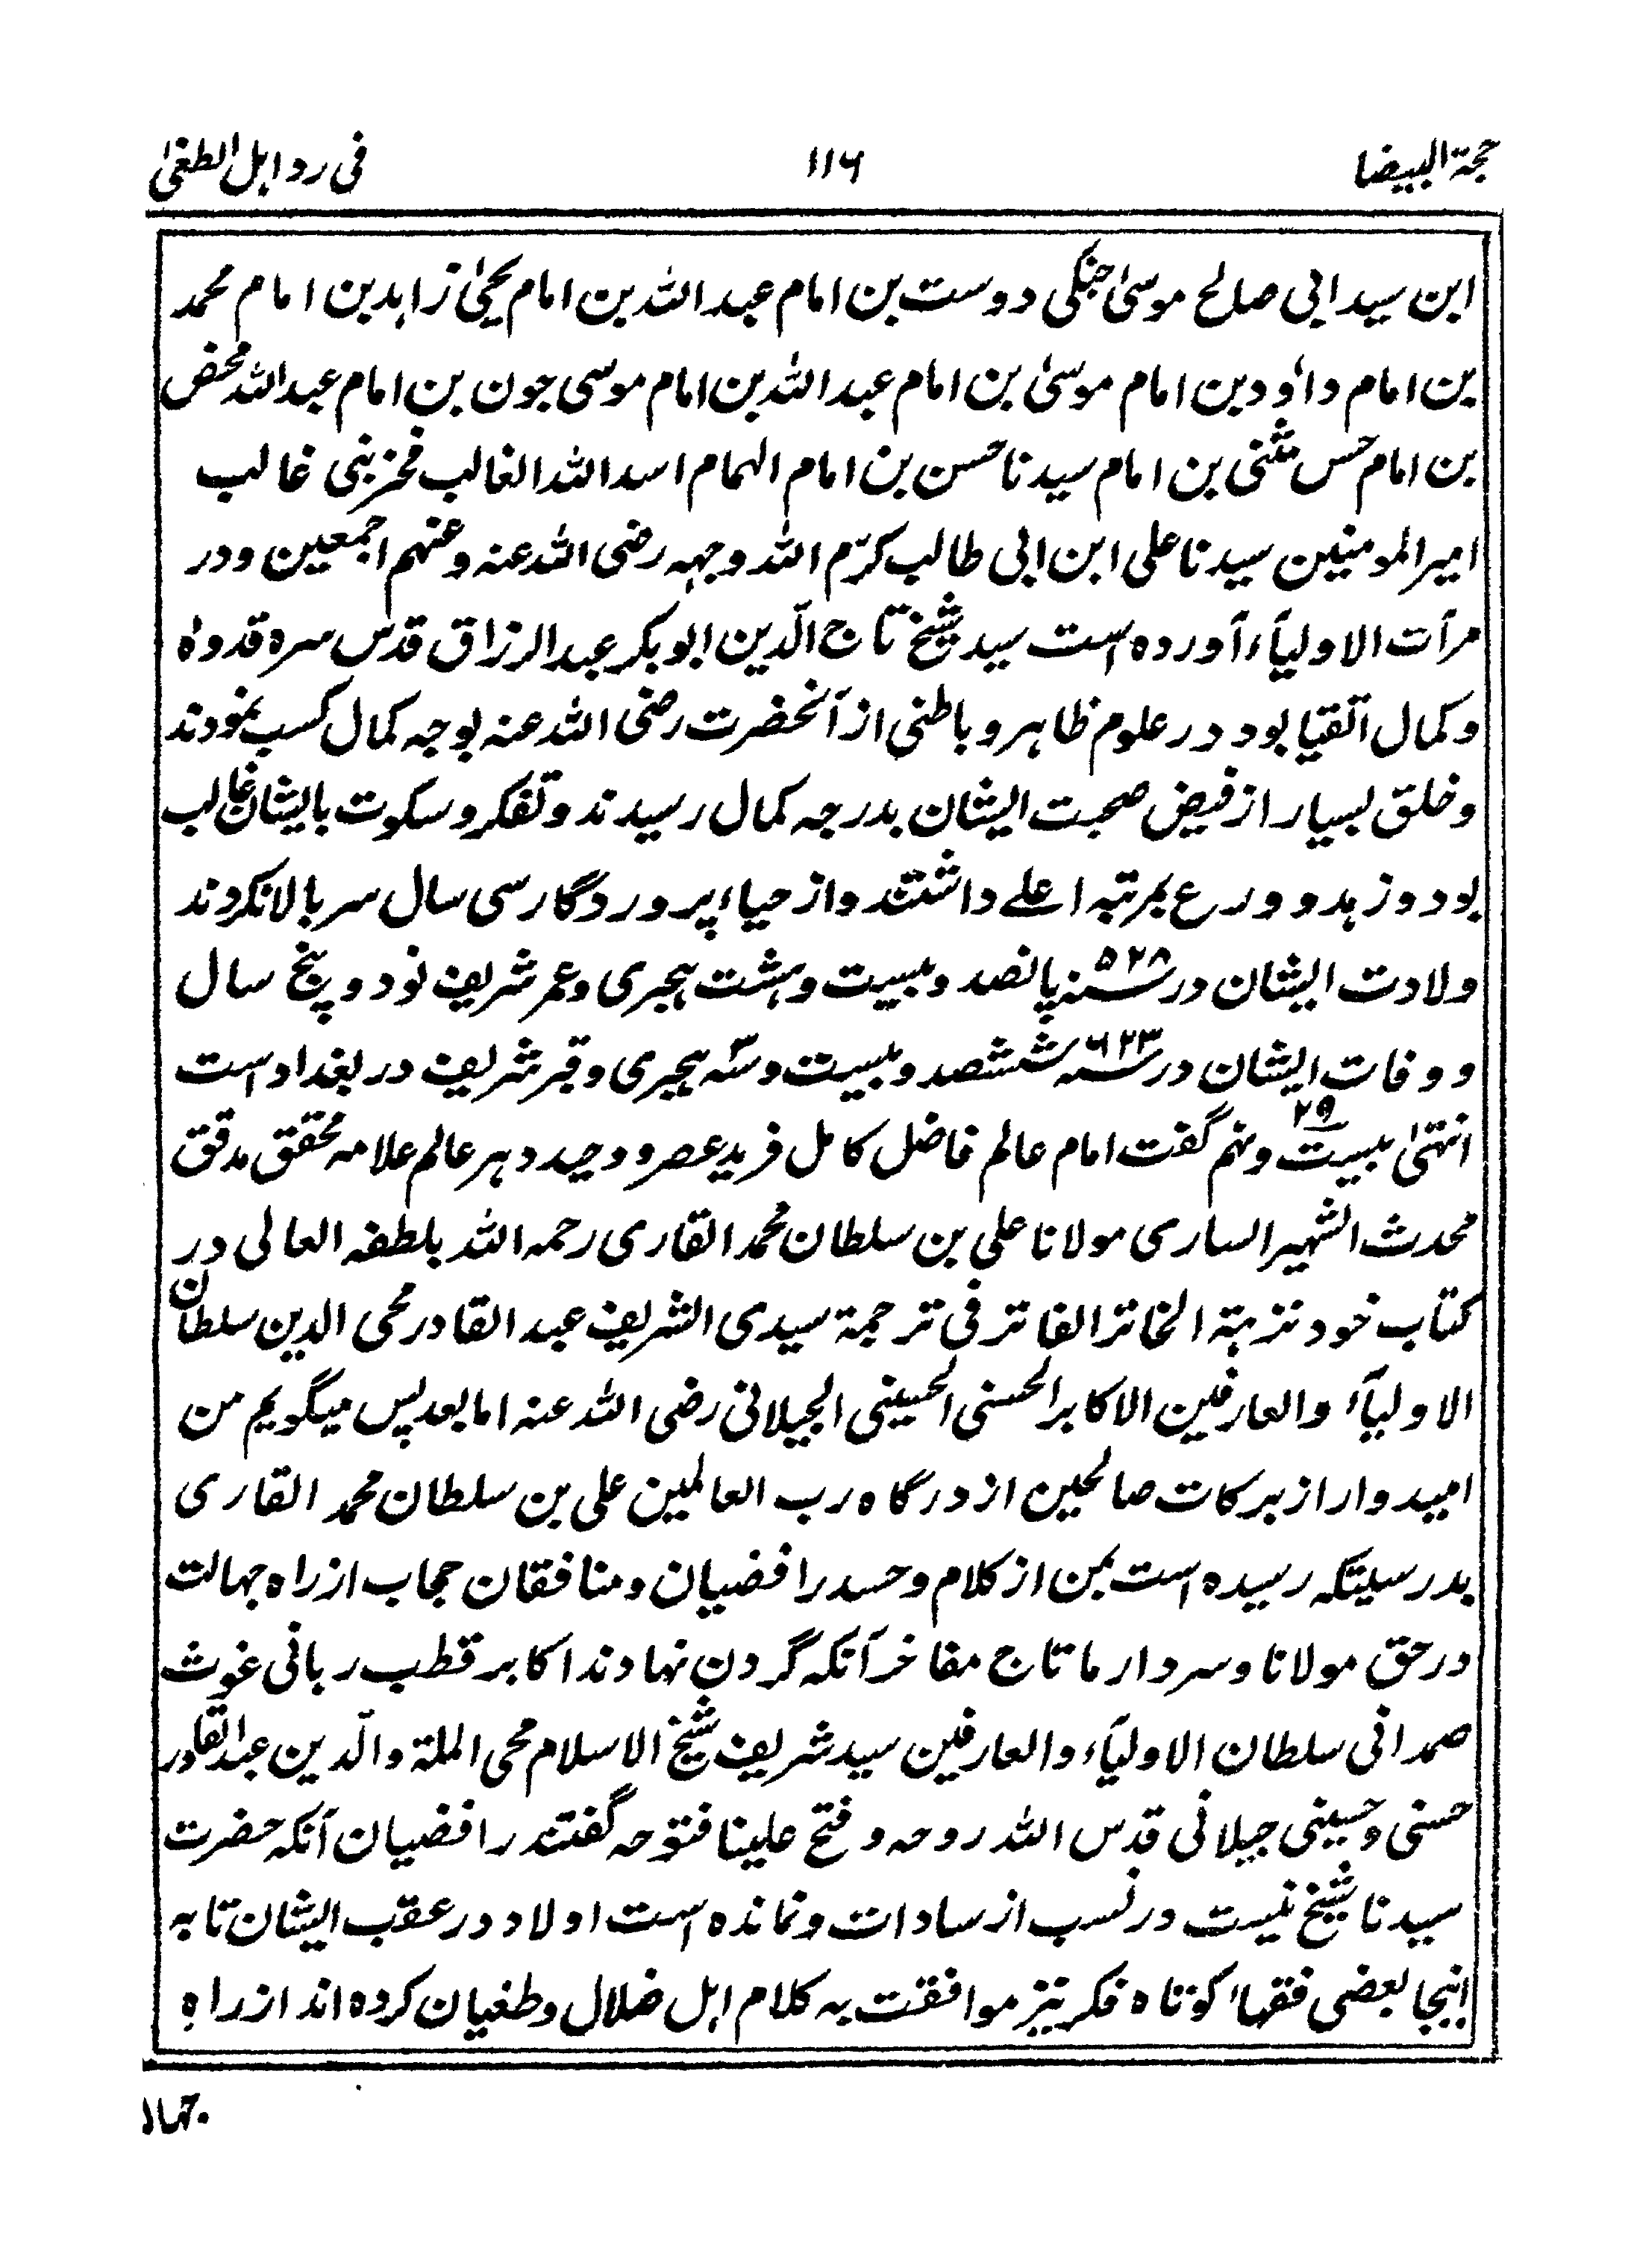 حجة البیضا ۱۱۶ فی رد اہل الطغیٰ
ابن سید ابی صالح موسیٰ جنگی دوست بن امام عبد اللہ بن امام یحییٰ زاہد بن امام محمد
بن امام داؤد بن امام موسیٰ بن امام عبد اللہ بن امام موسی جون بن امام عبد اللہ محض
بن امام حسن مثنی بن امام سیدنا حسن بن امام الہمام اسد اللہ الغالب فخر بنی غالب
امیر المومنین سیدنا علی ابن ابی طالب کرّم اللہ وجہہ رضی اللہ عنہ و عنہم اجمعین و در
مرآت الاولیآء آورده است سید شیخ تاج الدّین ابو بکر عبد الرزاق قدس سره قدوه
و کمال اتقیا بود در علوم ظاہر و باطنی از آنحضرت رضی اللہ عنہ بوجہ کمال کسب نمودند
و خلق بسیار از فیض صحبت ایشان بدرجہ کمال رسیدند و تفکر و سکوت بایشان غالب
بود و زہد و ورع بمرتبہ اعلے داشتند و از حیاء پروردگار سی سال سر بالا نکردند
ولادت ایشان در سنہ ۵۲۸ پانصد و بیست و ہشت ہجری و عمر شریف نود و پنج سال
و وفات ایشان در سنہ ۶۲۳ ششصد و بیست و سہ ہجری و قبر شریف در بغداد است
انتہیٰ ۲۹ بیست و نہم گفت امام عالم فاضل کامل فرید عصر و وحید دہر عالم علامہ محقق مدقق
محدث الشہیر الساری مولانا علی بن سلطان محمد القاری رحمہ اللہ بلطفہ العالی در
کتاب خود نزہتہ الخاتر الفاتر فی ترجمة سیدی الشریف عبد القادر محی الدین سلطان
الاولیآء والعارفین الاکابر الحسنی الحسینی الجیلانی رضی اللہ عنہ اما بعد پس میگویم من
امیدوار از برکات صالحین از درگاه رب العالمین علی بن سلطان محمد القاری
بدرسیتکہ رسیده است بمن از کلام و حسد رافضیان و منافقان حجاب از راه جہالت
در حق مولانا و سردار ما تاج مفاخر آنکہ گردن نہادند اکابر قطب ربانی غوث
صمدانی سلطان الاولیآء والعارفین سید شریف شیخ الاسلام محی الملة والدّین عبد القادر
حسنی و حسینی جیلانی قدس اللہ روحہ و فتح علینا فتوحہ گفتند رافضیان آنکہ حضرت
سیدنا شیخ نیست در نسب از سادات و نمانده است اولاد در عقب ایشان تا بہ
اینجا بعضی فقہاء کوتاه فکر نیز موافقت بہ کلام اہل ضلال و طغیان کرده اند از راهِ
جہالا